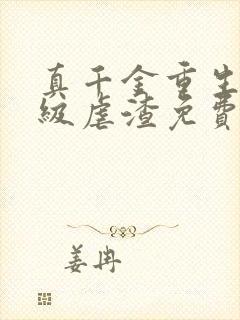 真千金重生
級虐渣免費
姜冉